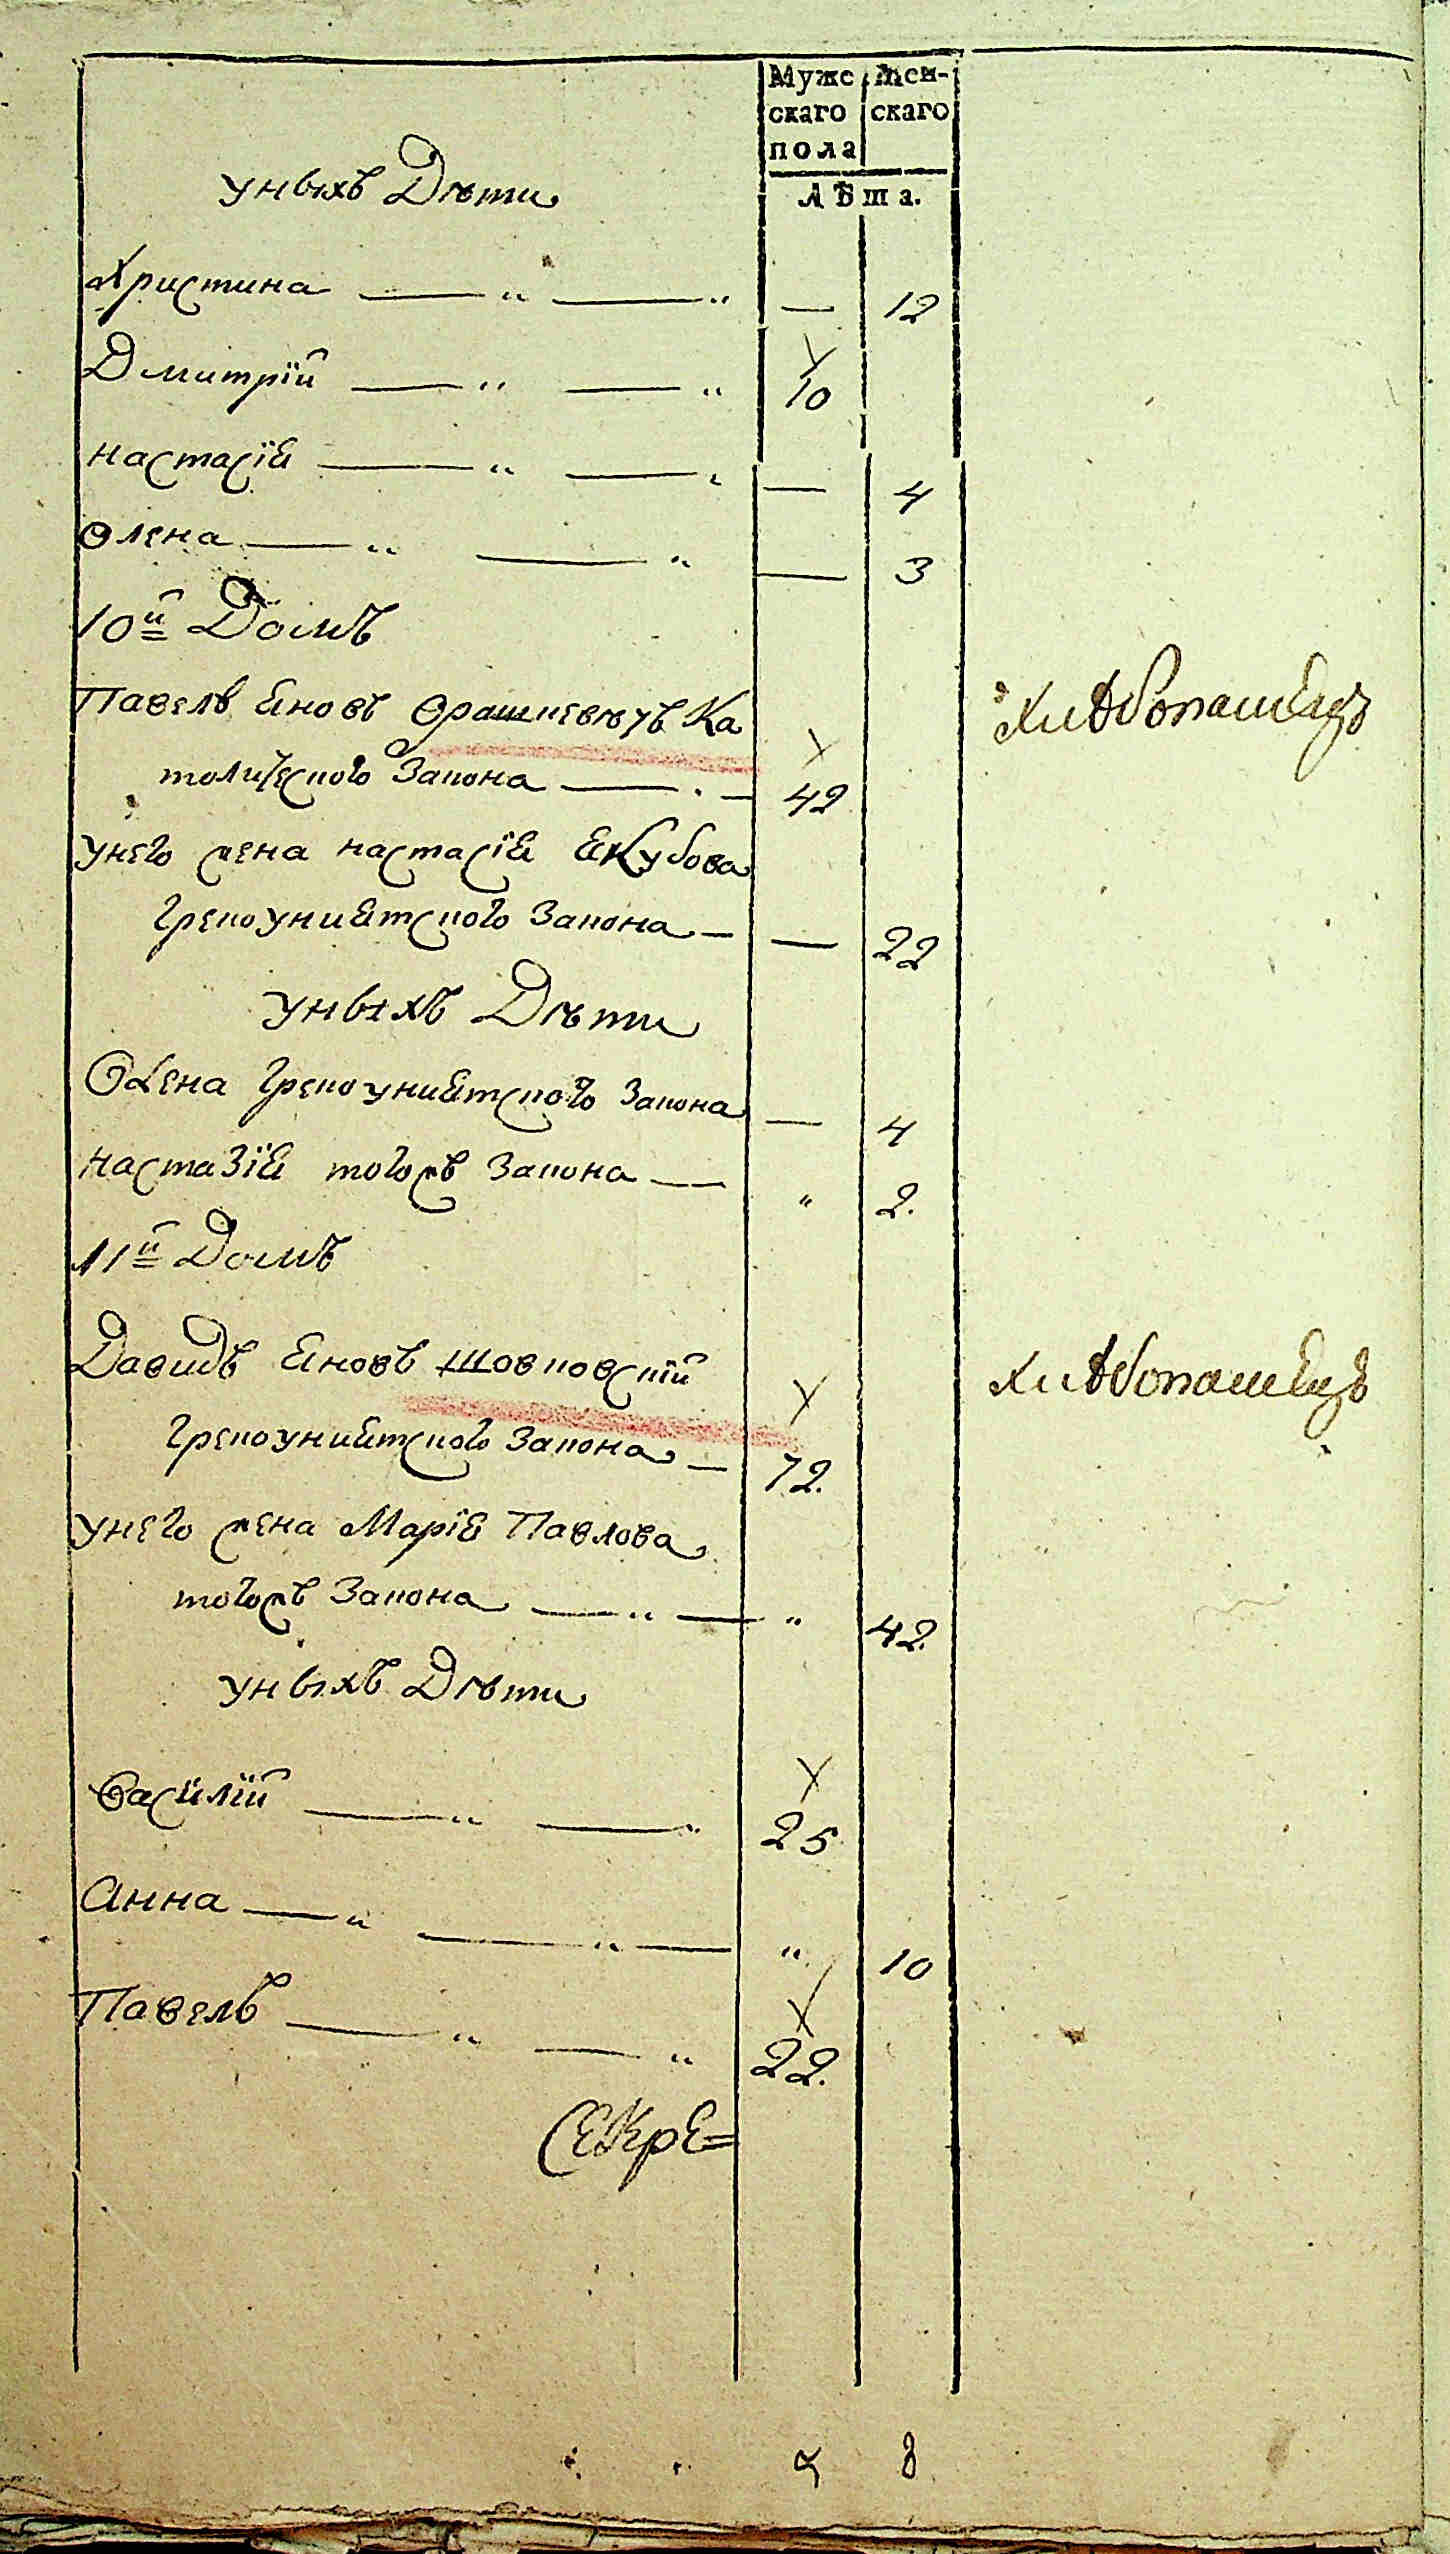 Муже Жен-
скаго скаго
пола
Лѣта.
уныхъ Дѣти
Христина — " — " — 12
Дмитрїй — " — " 10
Настасїя — " — " — 4
Олена — " — " — 3
10й Домъ
Павелъ Яновъ Ка
толического Закона — 42
Хлѣбопашецъ
унего жена Настасїя Якубова
Грекоуниятского Закона — — 22
уныхъ Дѣти
Олена Грекоуниятского Закона — 4
Настазїя тогожъ Закона — " 2.
11й Домъ
Давидъ Яновъ Шовковскїй
Хлѣбопашецъ
Грекоуниятского Закона — 72.
унего жена Марїя Павлова
тогожъ Закона — " — " 42.
уныхъ Дѣти
Василїй — " — " 25
Анна — " — " — " 10
Павелъ — " — " 22.
Секре=